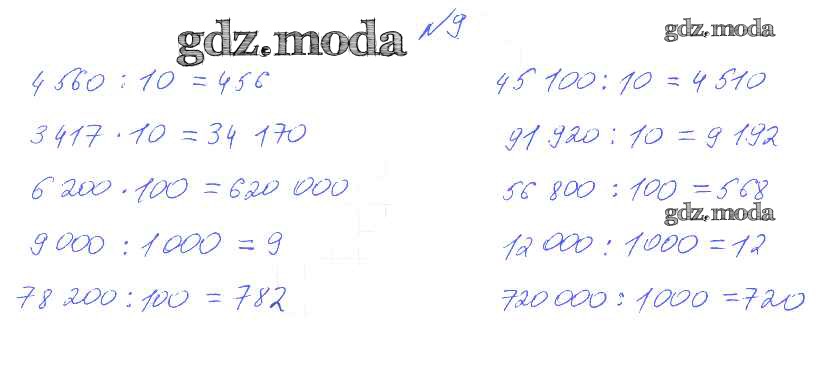 gdz.moda №9 gdz.moda
4 560 : 10 = 456
3 417 · 10 = 34 170
6 200 · 100 = 620 000
9 000 : 1 000 = 9
78 200 : 100 = 782
45 100 : 10 = 4 510
91 920 : 10 = 9 192
56 800 : 100 = 568
gdz.moda
12 000 : 1 000 = 12
720 000 : 1 000 = 720